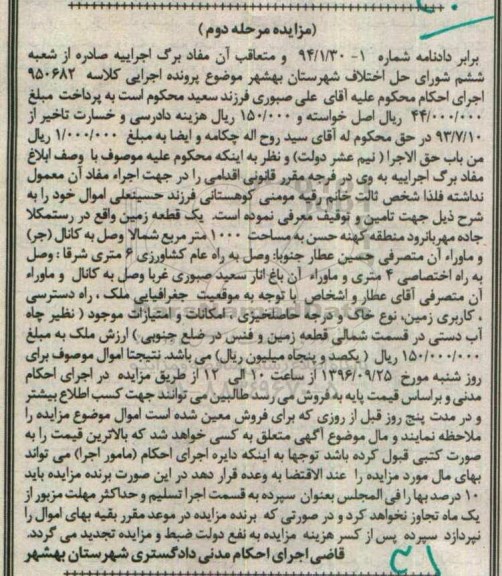 (مزایده مرحله دوم)
برابر دادنامه شماره ۱- ۹۴/۱/۳۰ و متعاقب آن مفاد برگ اجراییه صادره از شعبه
ششم شورای حل اختلاف شهرستان بهشهر موضوع پرونده اجرایی کلاسه ۹۵۰۶۸۲
اجرای احکام محکوم علیه آقای علی صبوری فرزند سعید محکوم است به پرداخت مبلغ
۴۴/۰۰۰/۰۰۰ ریال اصل خواسته و ۱۵۰/۰۰۰ ریال هزینه دادرسی و خسارت تاخیر از
۹۳/۷/۱۰ در حق محکوم له آقای سید روح اله چکامه و ایضا به مبلغ ۱/۰۰۰/۰۰۰ ریال
من باب حق الاجرا ( نیم عشر دولت) و نظر به اینکه محکوم علیه موصوف با وصف ابلاغ
مفاد برگ اجراییه به وی در فرجه مقرر قانونی اقدامی را در جهت اجراء مفاد آن معمول
نداشته فلذا شخص ثالث خانم رقیه مومنی کوهستانی فرزند حسینعلی اموال خود را به
شرح ذیل جهت تامین و توقیف معرفی نموده است. یک قطعه زمین واقع در رستمکلا
جاده مهربانرود منطقه کهنه حسن به مساحت ۱۰۰۰ متر مربع شمالا وصل به کانال (جر)
و ماوراء آن متصرفی حسین عطار جنوبا: وصل به راه عام کشاورزی ۶ متری شرقا : وصل
به راه اختصاصی ۴ متری و ماوراء آن باغ انار سعید صبوری غربا وصل به کانال و ماوراء
آن متصرفی آقای عطار و اشخاص با توجه به موقعیت جغرافیایی ملک ، راه دسترسی
، کاربری زمین، نوع خاک و درجه حاصلخیزی ، امکانات و امتیازات موجود ( نظیر چاه
آب دستی در قسمت شمالی قطعه زمین و فنس در ضلع جنوبی ) ارزش ملک به مبلغ
۱۵۰/۰۰۰/۰۰۰ ریال ( یکصد و پنجاه میلیون ریال) می باشد. نتیجتا اموال موصوف برای
روز شنبه مورخ ۱۳۹۶/۰۹/۲۵ از ساعت ۱۰ الی ۱۲ از طریق مزایده در اجرای احکام
مدنی و براساس قیمت پایه به فروش می رسد طالبین می توانند جهت کسب اطلاع بیشتر
و در مدت پنج روز قبل از روزی که برای فروش معین شده است اموال موضوع مزایده را
ملاحظه نمایند و مال موضوع آگهی متعلق به کسی خواهد شد که بالاترین قیمت را به
صورت کتبی قبول کرده باشد توجها به اینکه دایره اجرای احکام (مامور اجرا) می تواند
بهای مال مورد مزایده را عند الاقتضا به وعده قرار دهد در این صورت برنده مزایده باید
۱۰ درصد بها را فی المجلس بعنوان سپرده به قسمت اجرا تسلیم و حداکثر مهلت مزبور از
یک ماه تجاوز نخواهد کرد و در صورتی که برنده مزایده در موعد مقرر بقیه بهای اموال را
نپردازد سپرده پس از کسر هزینه مزایده به نفع دولت ضبط و مزایده تجدید می گردد.
قاضی اجرای احکام مدنی دادگستری شهرستان بهشهر